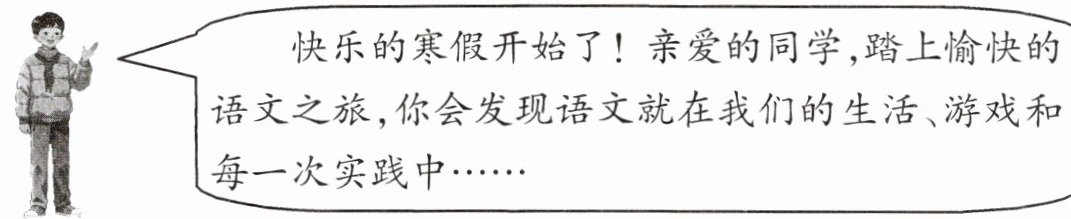 快乐的寒假开始了！亲爱的同学,踏上愉快的
语文之旅,你会发现语文就在我们的生活、游戏和
每一次实践中……